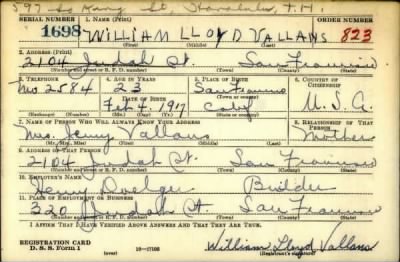 597 So King St. Honolulu, T.H.
SERIAL NUMBER 1. NAME (Print) ORDER NUMBER
1698 WILLIAM LLOYD VALLANS 823
(First) (Middle) (Last)
2. ADDRESS (Print)
2104 Judah St. San Francisco
(Number and street or R. F. D. number) (Town) (County) (State)
3. TELEPHONE 4. AGE IN YEARS 5. PLACE OF BIRTH 6. COUNTRY OF CITIZENSHIP
Mo 2584 23 San Francisco
DATE OF BIRTH
Feb 4 1917 Calif U.S.A.
(Exchange) (Number) (Mo.) (Day) (Yr.) (State or country)
7. NAME OF PERSON WHO WILL ALWAYS KNOW YOUR ADDRESS 8. RELATIONSHIP OF THAT PERSON
Mrs. Jenny Vallans Mother
(Mr., Mrs., Miss) (First) (Middle) (Last)
9. ADDRESS OF THAT PERSON
2104 Judah St. San Francisco
(Number and street or R. F. D. number) (Town) (County) (State)
10. EMPLOYER'S NAME
Henry Doelger Builder
11. PLACE OF EMPLOYMENT OR BUSINESS
320 Judah St. San Francisco
(Number and street or R. F. D. number) (Town) (County) (State)
I AFFIRM THAT I HAVE VERIFIED ABOVE ANSWERS AND THAT THEY ARE TRUE.
REGISTRATION CARD
D. S. S. Form 1 (over) 16-17105 William Lloyd Vallans
(Registrant's signature)